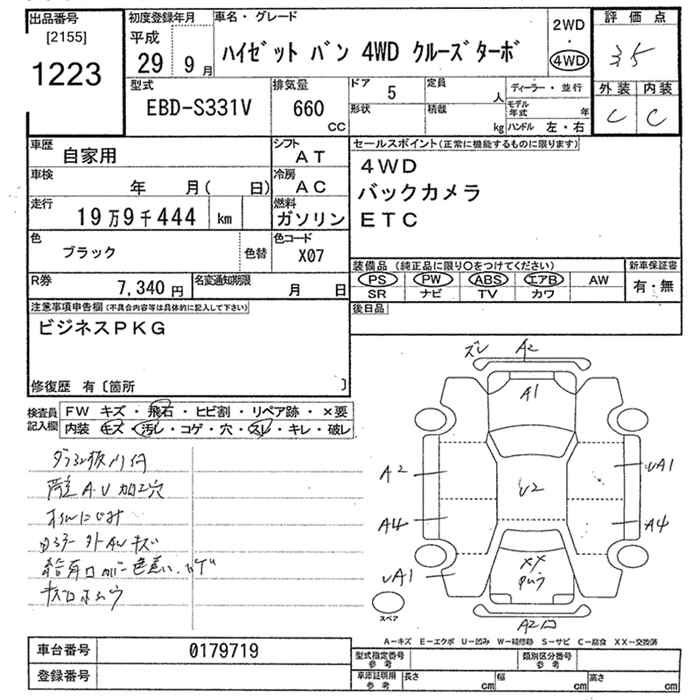 出品番号
[2155]
1223
初度登録年月
平成
29 9月
車名・グレード
ハイゼット バン 4WD クルーズターボ
2WD
・
4WD
評価点
35
外装 内装
C C
型式
EBD-S331V
排気量
660
CC
ドア 5
定員
人
形状
積載
kg
ディーラー・並行
モデル年式 年
ハンドル 左・右
車歴
自家用
シフト
AT
車検
年 月( 日)
冷房
AC
走行
19万9千444 km
燃料
ガソリン
色
ブラック
色替
色コード
X07
R券
7,340円
名変通知期限
月 日
セールスポイント(正常に機能するものに限ります)
4WD
バックカメラ
ETC
装備品(純正品に限り○をつけてください)
PS PW ABS エアB AW
SR ナビ TV カワ
新車保証書
有・無
後日品
注意事項申告欄(不具合内容等は具体的に記入して下さい)
ビジネスPKG
修復歴 有〔箇所 〕
検査員記入欄
FW キズ・飛石・ヒビ割・リペア跡・×要
内装 キズ・汚レ・コゲ・穴・スレ・キレ・破レ
ズレ A2
A1
A2
UA1
U2
A4
A4
XX
UA1
A2
スペア
A-キズ E-エクボ U-凹み W-補修跡 S-サビ C-腐食 XX-交換済
車台番号
0179719
登録番号
型式指定番号
参考
類別区分番号
参考
車庫証明用
参考
長さ cm
幅 cm
高さ cm